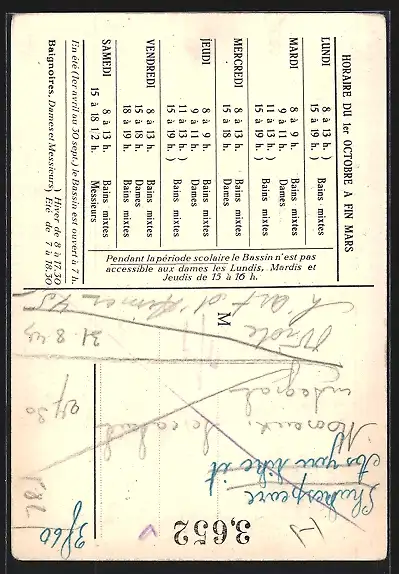 HORAIRE DU 1er OCTOBRE A FIN MARS
LUNDI 8 à 13 h. ) Bains mixtes
15 à 19 h. )
MARDI 8 à 9 h. Bains mixtes
9 à 11 h. Dames
11 à 13 h. ) Bains mixtes
15 à 19 h. )
MERCREDI 8 à 13 h. Bains mixtes
15 à 18 h. Dames
JEUDI 8 à 9 h. Bains mixtes
9 à 11 h. Dames
11 à 13 h. ) Bains mixtes
15 à 19 h. )
VENDREDI 8 à 13 h. Bains mixtes
15 à 18 h. Dames
18 à 19 h. Bains mixtes
SAMEDI 8 à 13 h. Bains mixtes
15 à 18 1/2 h. Messieurs
En été (1er avril au 30 sept.) le Bassin est ouvert à 7 h.
Baignoires, Dames et Messieurs ) Hiver de 8 à 17.30
) Eté de 7 à 18.30
Pendant la période scolaire le Bassin n'est pas
accessible aux dames les Lundis, Mardis et
Jeudis de 15 à 16 h.
M
3,652
3/60
Shakespeare
As you like it
integral
Ovide
L'art d'aimer
31 8 43